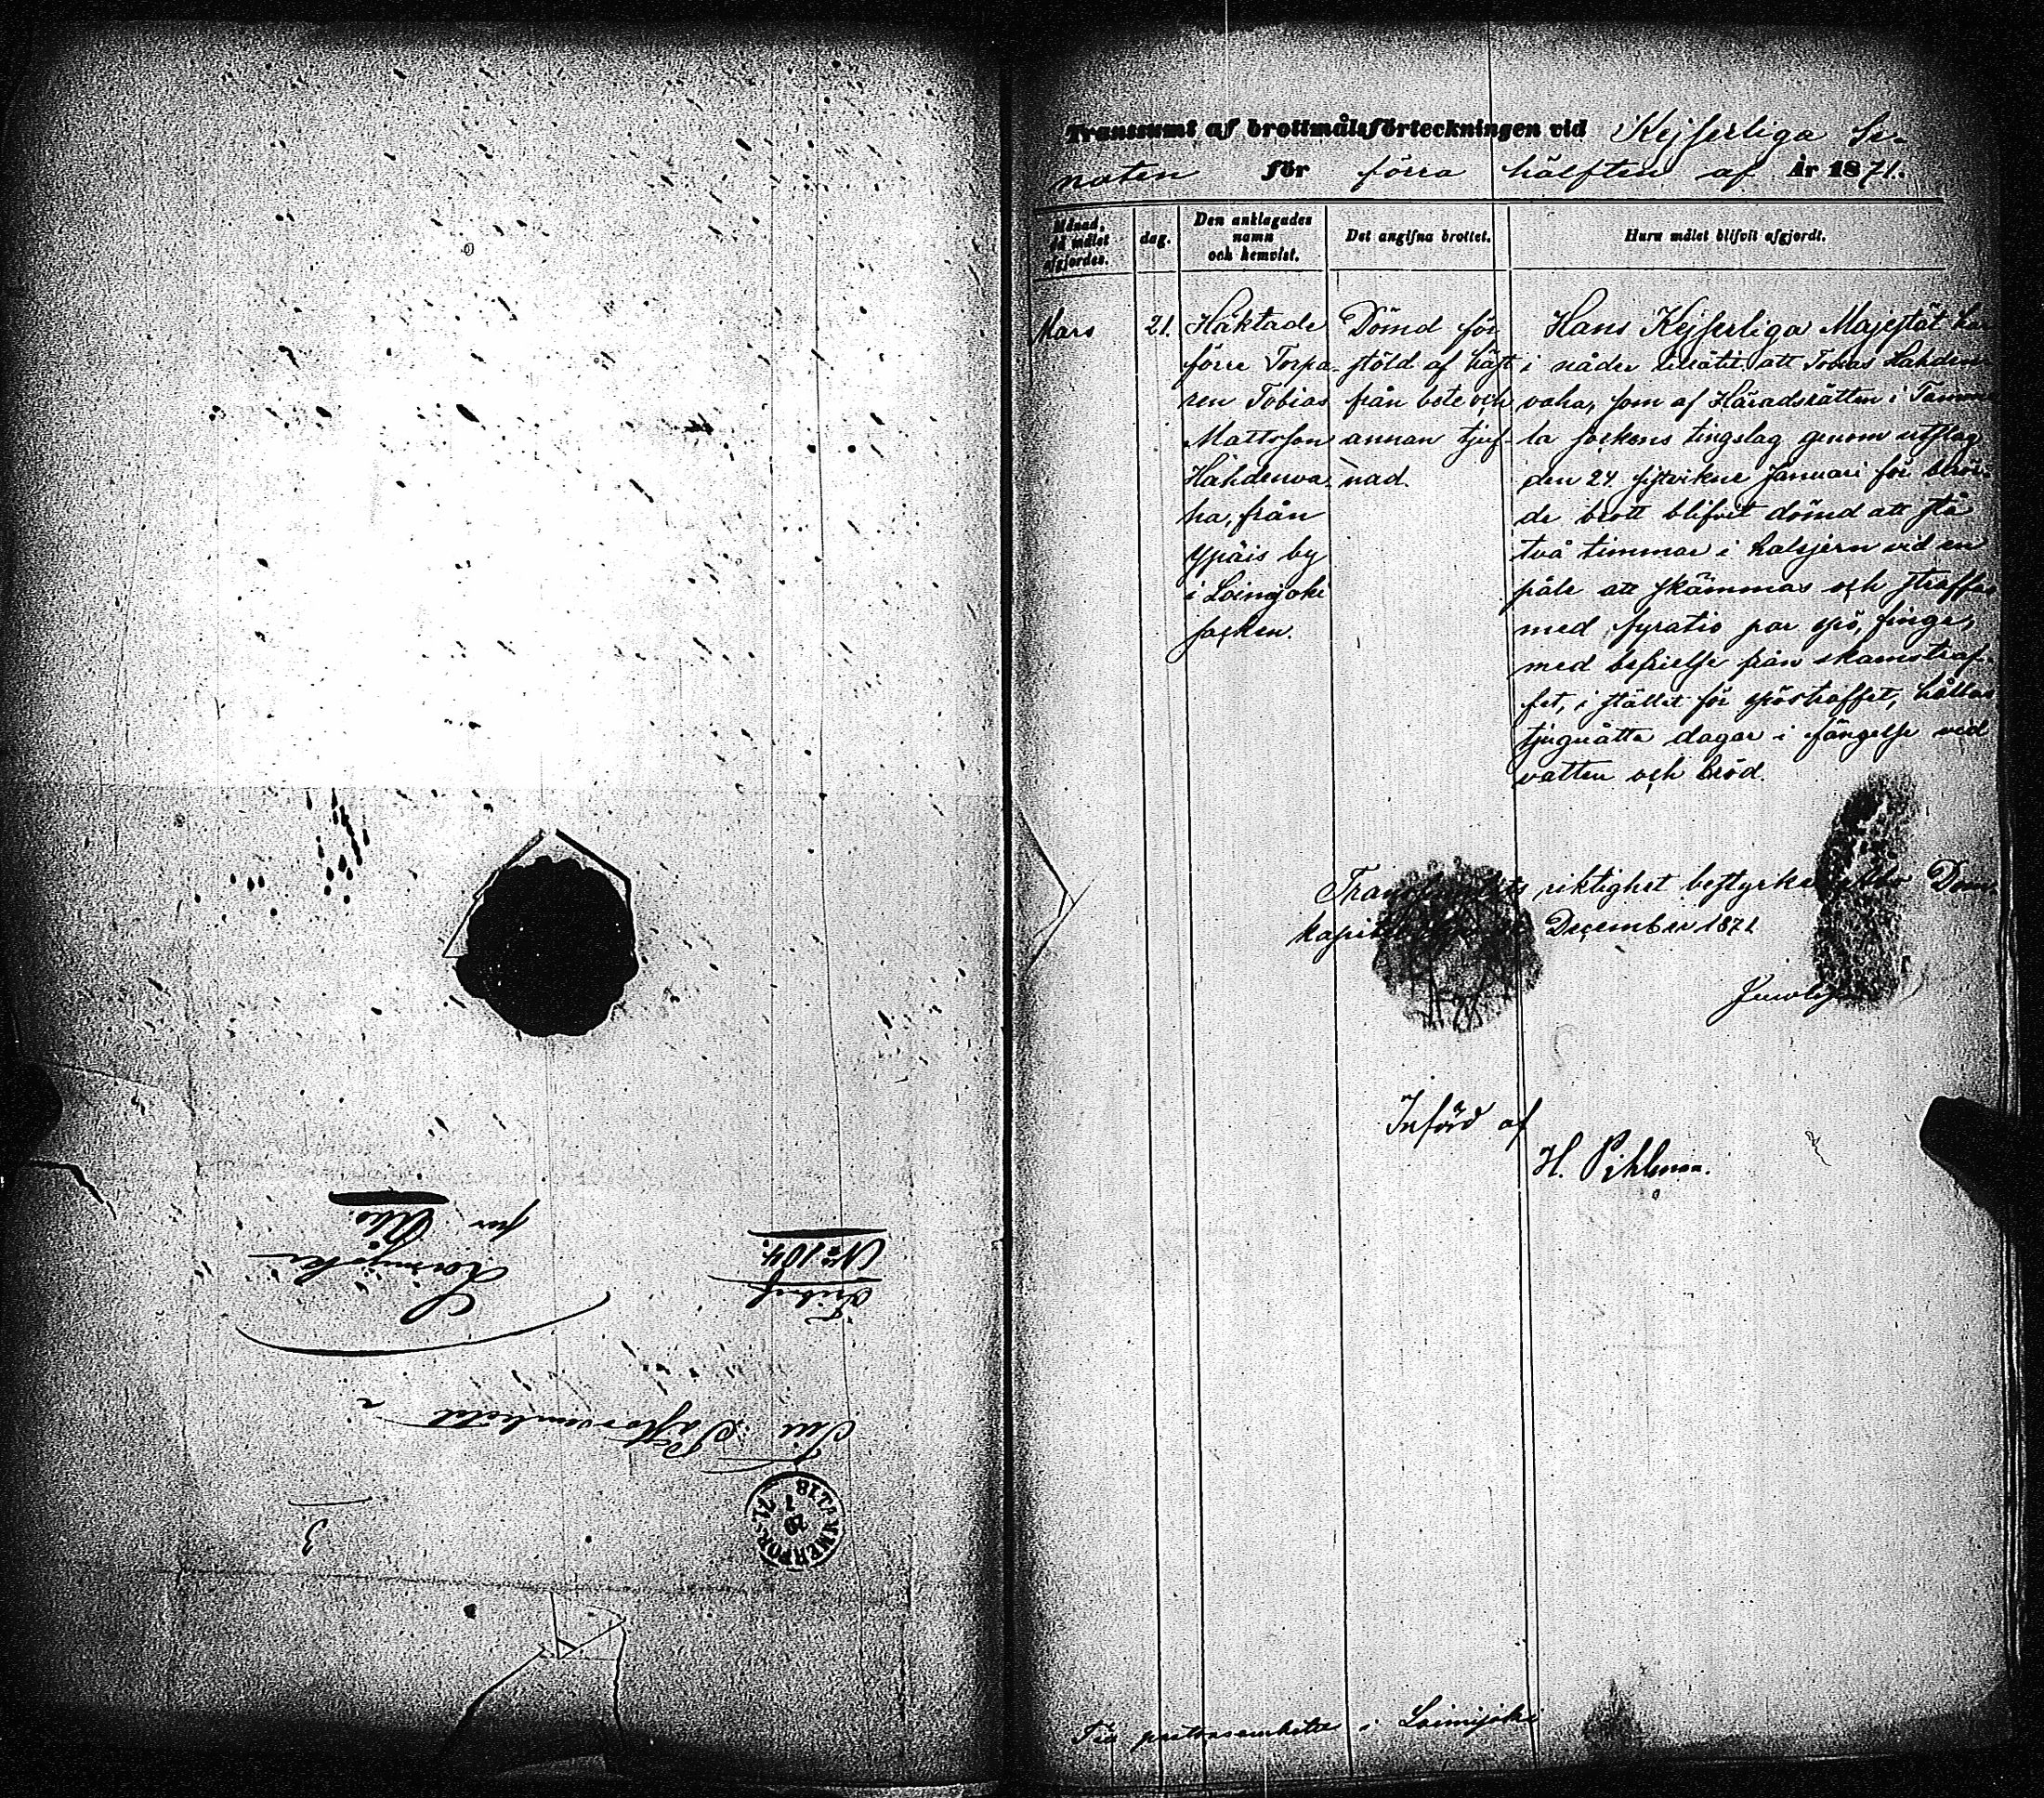 Fribref
No 104.
Till
Pastorsembetet
i
Loimijoki
par Åbo.
3
Transsumt af brottmålsförteckningen vid Kejserliga Se-
naten för förra hälften af År 1871.
Månad, då målet afgjordes.
dag.
Den anklagades namn och hemvist.
Det angifna brottet.
Huru målet blifvit afgjordt.
Mars
21.
Häktade
förre Torpa-
ren Tobias
Mattsson
Hahdenva-
ha, från
Ypäis by
i Loimijoki
socken.
Dömd för
stöld af häst
från bete och
annan tjuf-
nad.
Hans Kejserliga Majestät har
i nåder tillåtit att Tobias Hahden-
vaha, som af Häradsrätten i Tamme-
la sockens tingslag genom utslag
den 24 sistvikne Januari för berör-
de brott blifvit dömd att stå
två timmar i halsjern vid en
påle att skämmas och straffas
med fyratio par spö, finge,
med befrielse från skamstraf-
fet, i stället för spöstraffet, hållas
tjuguåtta dagar i fängelse vid
vatten och bröd.
riktighet bestyrker Åbo Dom-
kapitel December 1871
Införd af
H. Pihlman.
Till pastorsembetet i Loimijoki